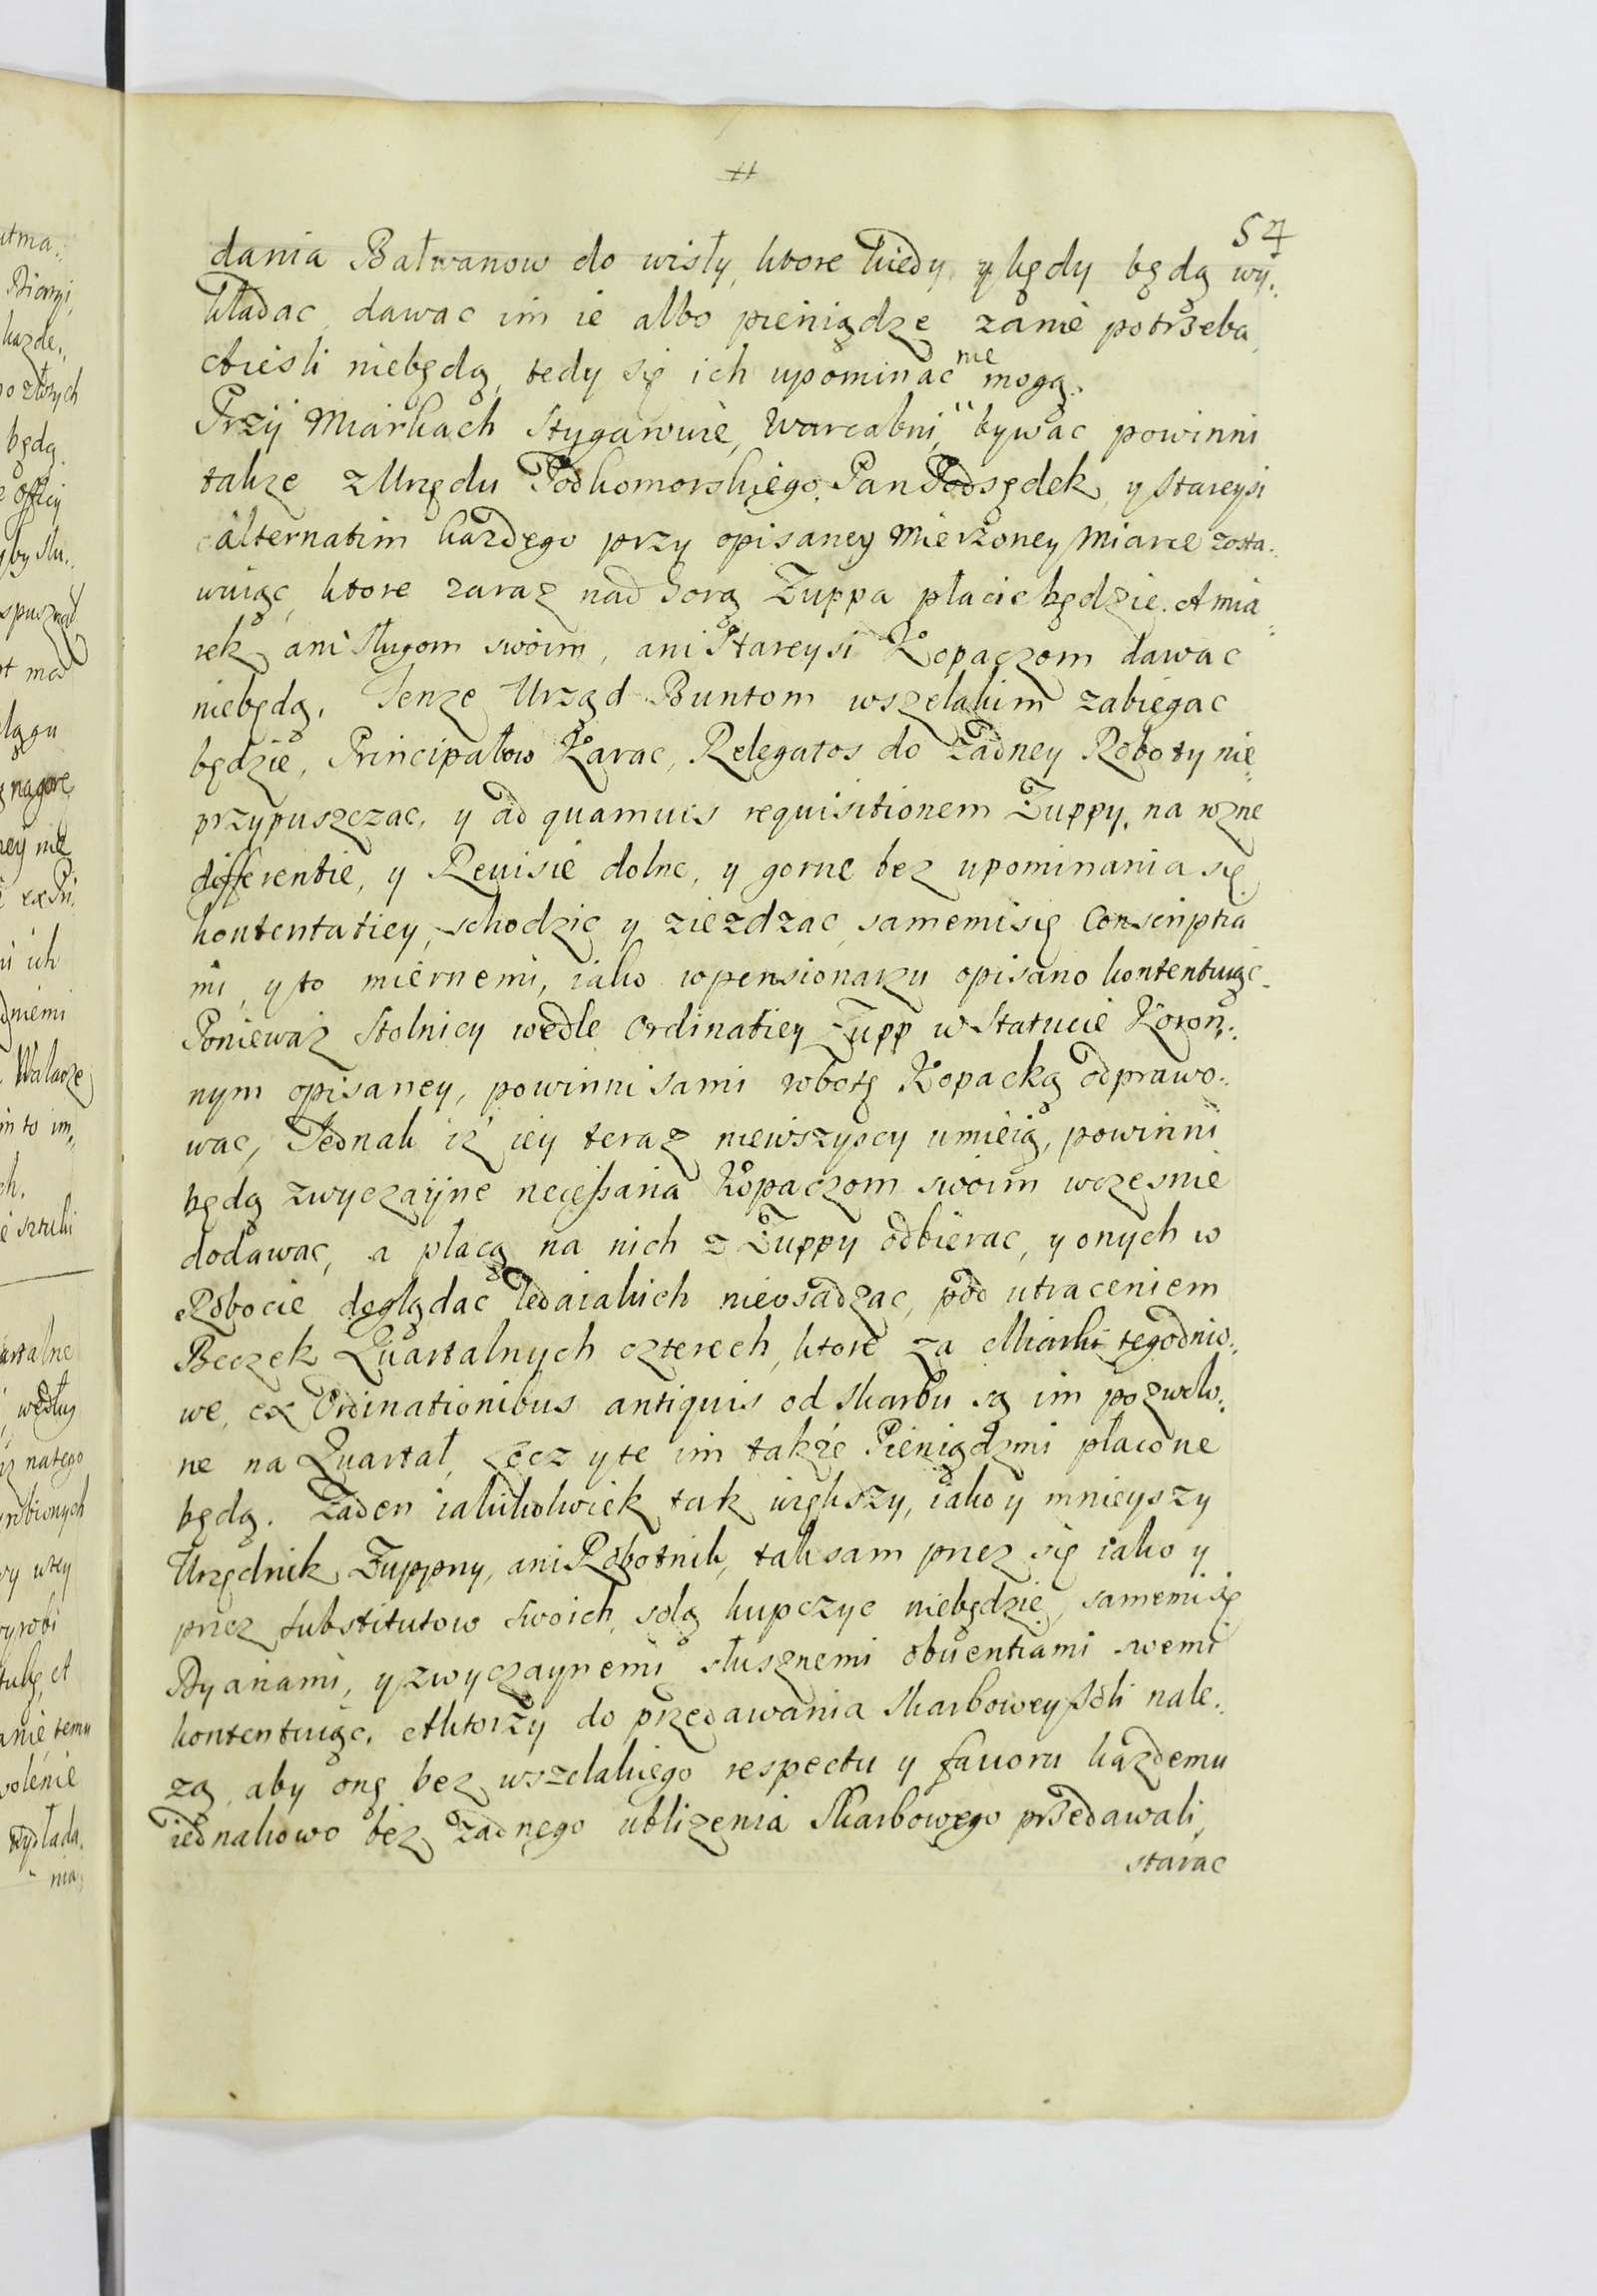 57
dania Bałwanow do wisły, ktore kiedy y kędy będą wy„
kładac, dawac im ie albo pieniądze zanie potrzeba,
A iesli niebędą, tedy się ich upominac nie mogą.
Przij Miarkach Stygarowie, Warcabni, bywac powinni
takze z Urzędu Podkomorskiego, Pan Podsędek, y Stareysi
alternatim kazdego przy opisaney Mierzoney Miarce zosta„
wuiąc, ktore zaraz nad Gorą Zuppa płacic będzie. A mia„
rek ani Sługom swoim, ani Stareysi Kopaczom dawac
niebędą. Tenze Urząd Buntom wszelakim zabiegac
będzie, Principałow Karac, Relegatos do żadney Roboty nie„
przypuszczac, y ad quamuis requisitionem Zuppy, na rozne
differentie, y Reuisie dolne, y gorne bez upominania się
kontentatiey, schodzic y ziezdzac, samemi się Conscriptia„
mi, y to miernemi, iako w pensionarzu opisano kontentuiąc.
Ponieważ Stolnicy wedle Ordinatiey Zupp w Statucie Koron„
nym opisaney, powinni sami robotę Kopacką odprawo„
wac, Jednak iż iey teraz niewszyscy umieią, powinni
będą zwyczayne necessaria Kopaczom swoim wczesnie
dodawac, a płacą na nich z Zuppy odbierac, y onych w
Robocie doglądac ledaiakich nieosadzac, pod utraceniem
Beczek Quartalnych czterech, ktore za Miarki tegodnio„
we, ex Ordinationibus antiquis od Skarbu są im pozwolo„
ne na Quartał, Lecz y te im także Pieniądzmi płacone
będą. Zaden iakikolwiek tak większy, iako y mnieyszy
Urzędnik Zuppny, ani Robotnik, tak sam przez się iako y
przez Substitutow swoich, solą kupczyc niebędzie, samemi się
Dyariami, y zwyczaynemi słusznemi obuentiami swemi
kontentuiąc. A ktorzy do przedawania Skarbowey Soli nale„
zą, aby onę bez wszelakiego respectu y fauoru każdemu
iednakowo bez żadnego ubliżenia Skarbowego przedawali,
starac